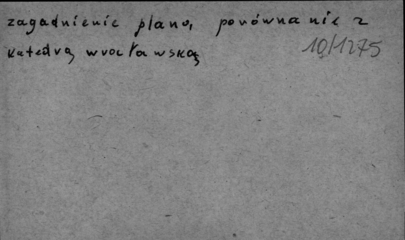 zagadnienie planu, porównanie z
katedrą wrocławską
10/1275